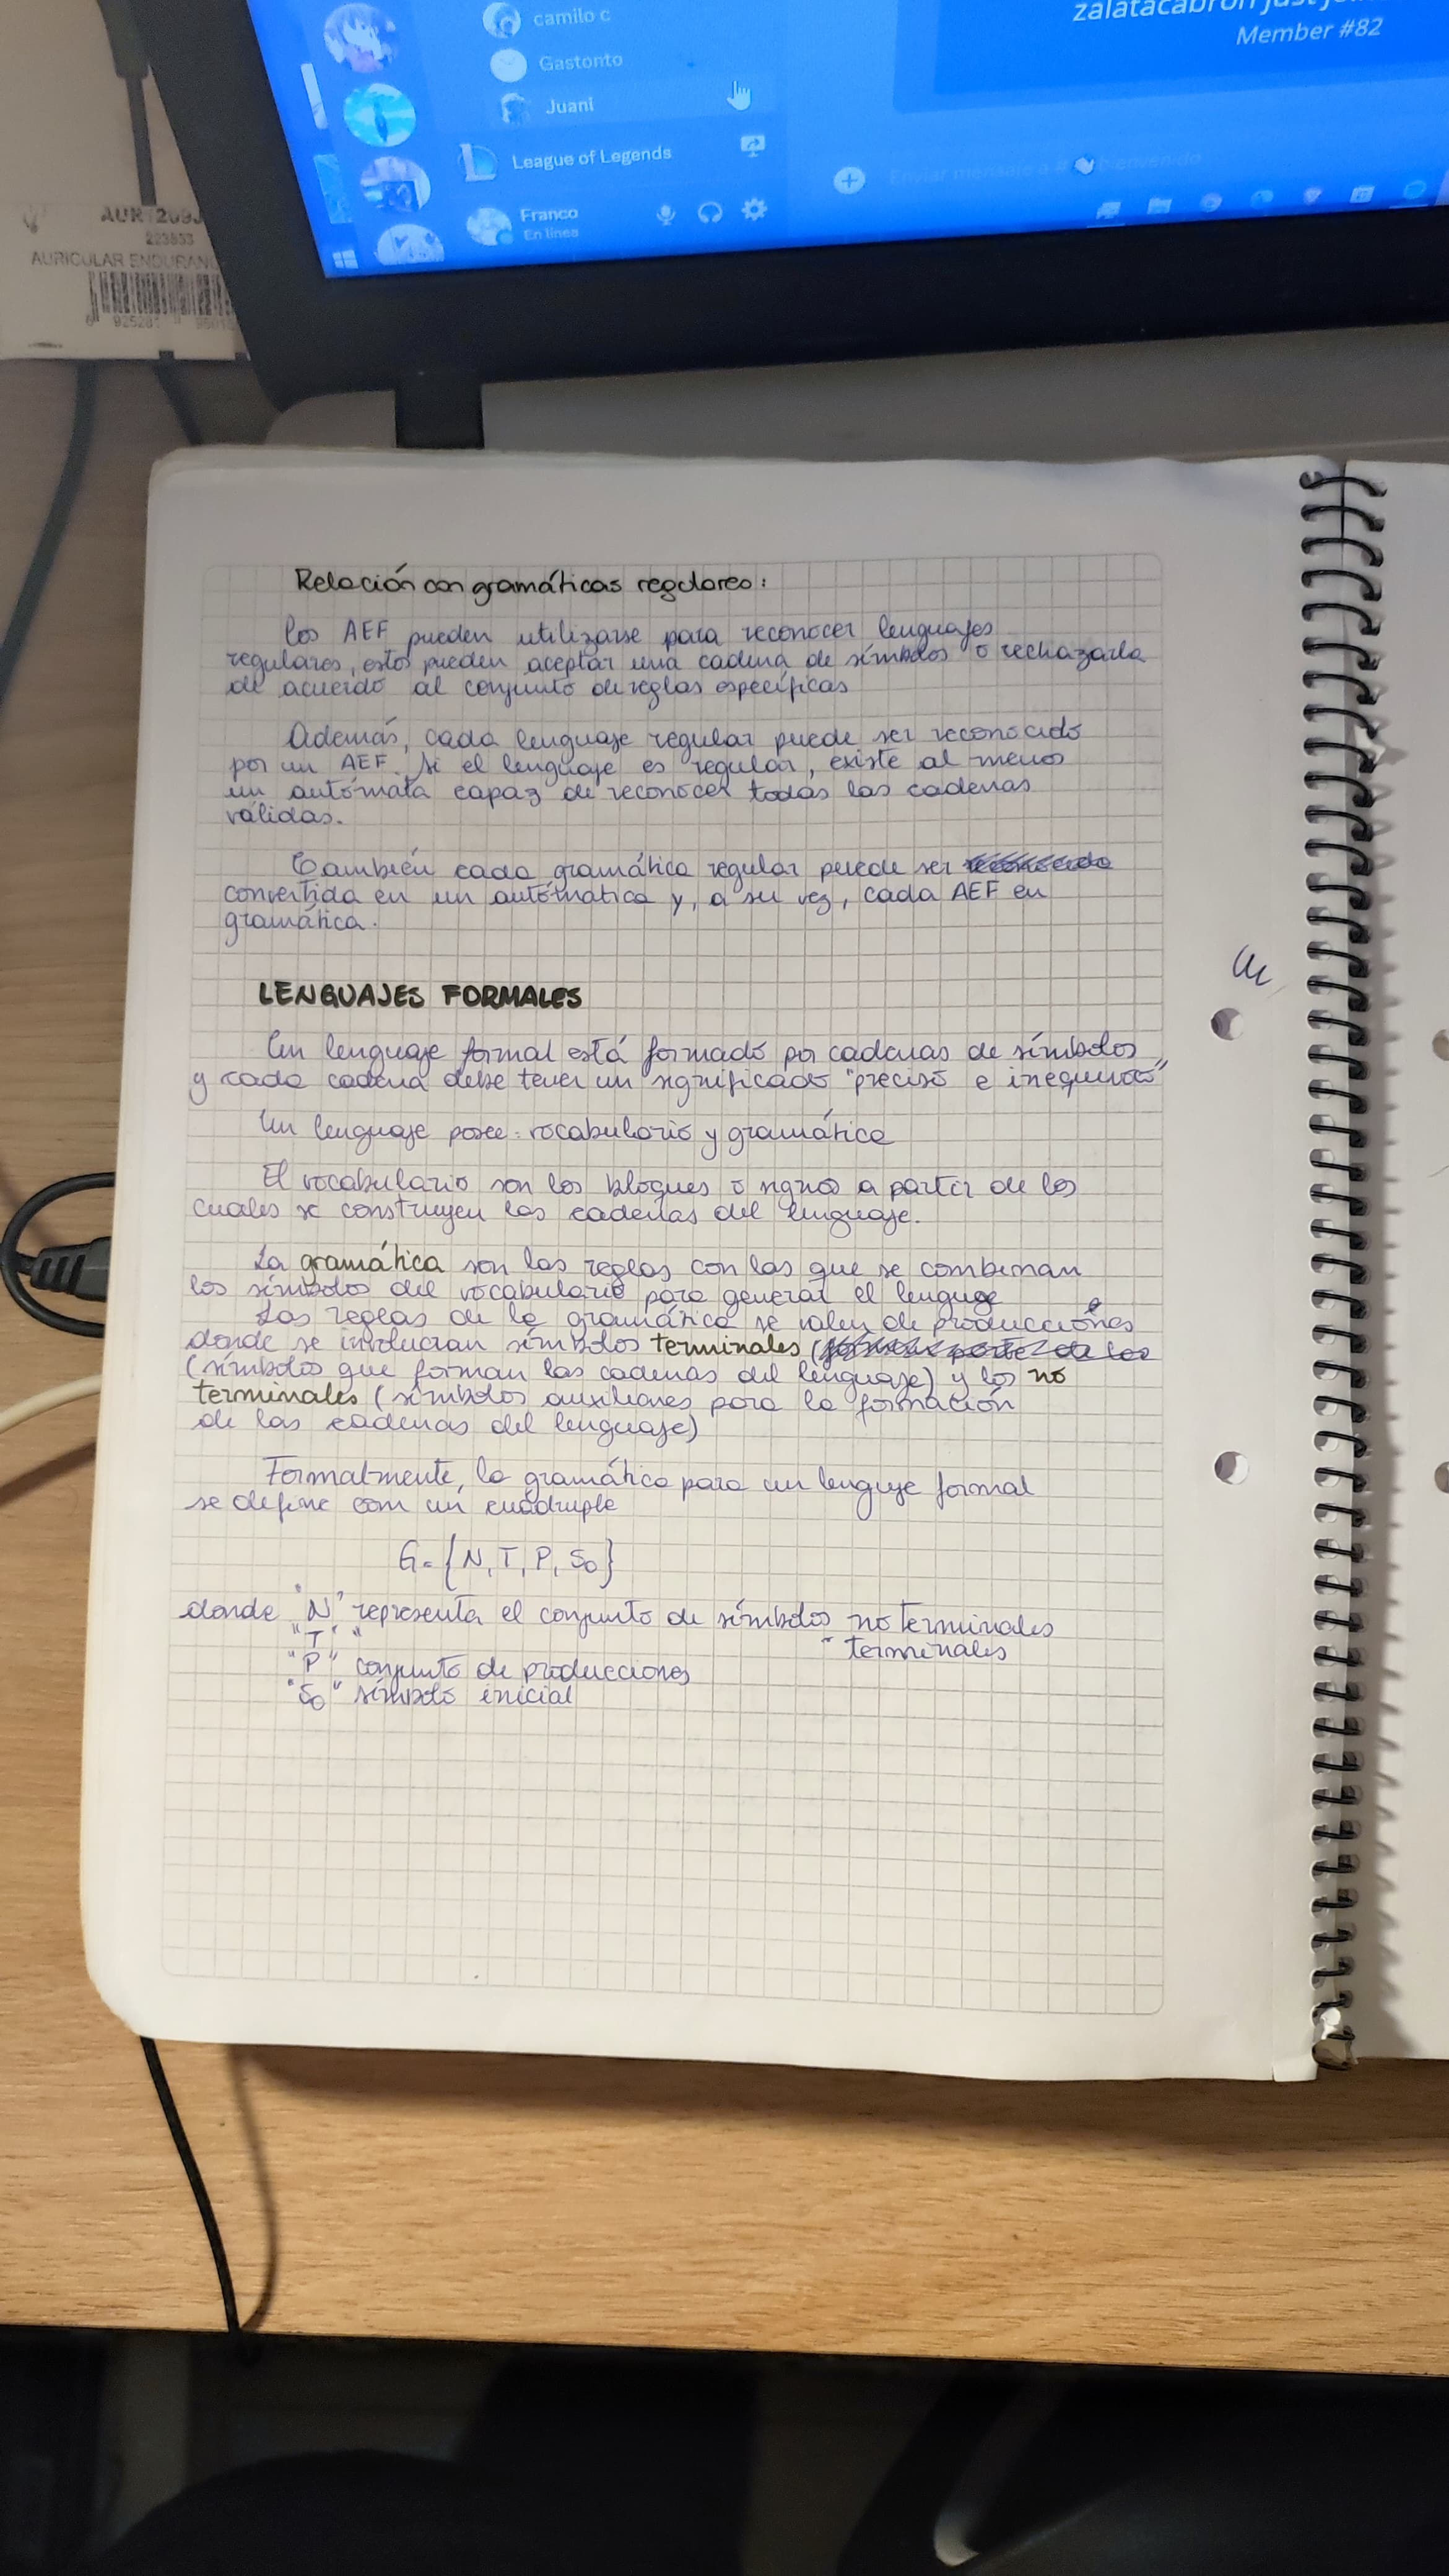 camilo c
Gastonto
Juani
League of Legends
Franco
En línea
zalatacabron just
Member #82
Enviar mensaje a # bienvenido
223833
AURICULAR
Relación con gramáticas regulares:
Los AEF pueden utilizarse para reconocer lenguajes
regulares, estos pueden aceptar una cadena de símbolos o rechazarla
de acuerdo al conjunto de reglas específicas
Además, cada lenguaje regular puede ser reconocido
por un AEF. Si el lenguaje es regular, existe al menos
un autómata capaz de reconocer todas las cadenas
válidas.
También cada gramática regular puede ser
convertida en un autómatica y, a su vez, cada AEF en
gramática.
LENGUAJES FORMALES
Un lenguaje formal está formado por cadenas de símbolos
y cada cadena debe tener un significado "preciso e inequívoco"
Un lenguaje posee: vocabulario y gramática
El vocabulario son los bloques o signos a partir de los
cuales se construyen las cadenas del lenguaje.
La gramática son las reglas con las que se combinan
los símbolos del vocabulario para generar el lenguaje
Las reglas de la gramática se valen de producciones
donde se involucran símbolos terminales (
(símbolos que forman las cadenas del lenguaje) y los no
terminales (símbolos auxiliares para la formación
de las cadenas del lenguaje)
Formalmente, la gramática para un lenguje formal
se define com un cuádruple
G = {N, T, P, S₀}
donde "N" representa el conjunto de símbolos no terminales
"T" " " terminales
"P" conjunto de producciones
"S₀" símbolo inicial